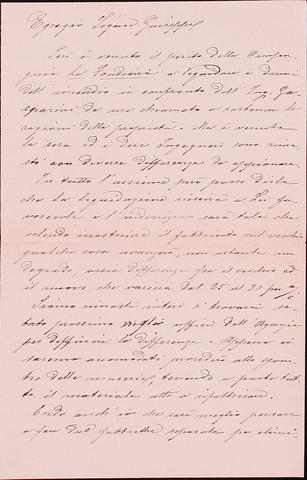 Egregio Signor Giuseppe
Ieri è venuto il perito della Compa-
gnia La Fondiaria a liquidare i danni
dell'incendio in confronto dell'Ing. Ga-
sparini, da me chiamato a sostenere le
ragioni della proprietà. Ma è venuta
la sera ed i due Ingegneri sono rima-
sti con diverse differenze da appianare.
In tutto l'assieme però posso dirle
che la liquidazione riescirà a Lei fa-
vorevole e l'indennizzo sarà tale che
volendo ricostruire il fabbricato sul vecchio
qualche cosa avanzerà, non ostante un
degrado, ossia differenza fra il vecchio ed
il nuovo, che varierà dal 25 al 30 per %.
Siamo rimasti intesi di trovarci sa-
bato prossimo negli uffici dell'Agenzia
per definire le differenze. Appena ci
saremo accomodati, procederò allo sgom-
bro delle macerie, tenendo a parte tut-
to il materiale atto a rifabbricare.
Credo anch'io che sarà meglio pensare
a fare due fabbriche separate per elimi-